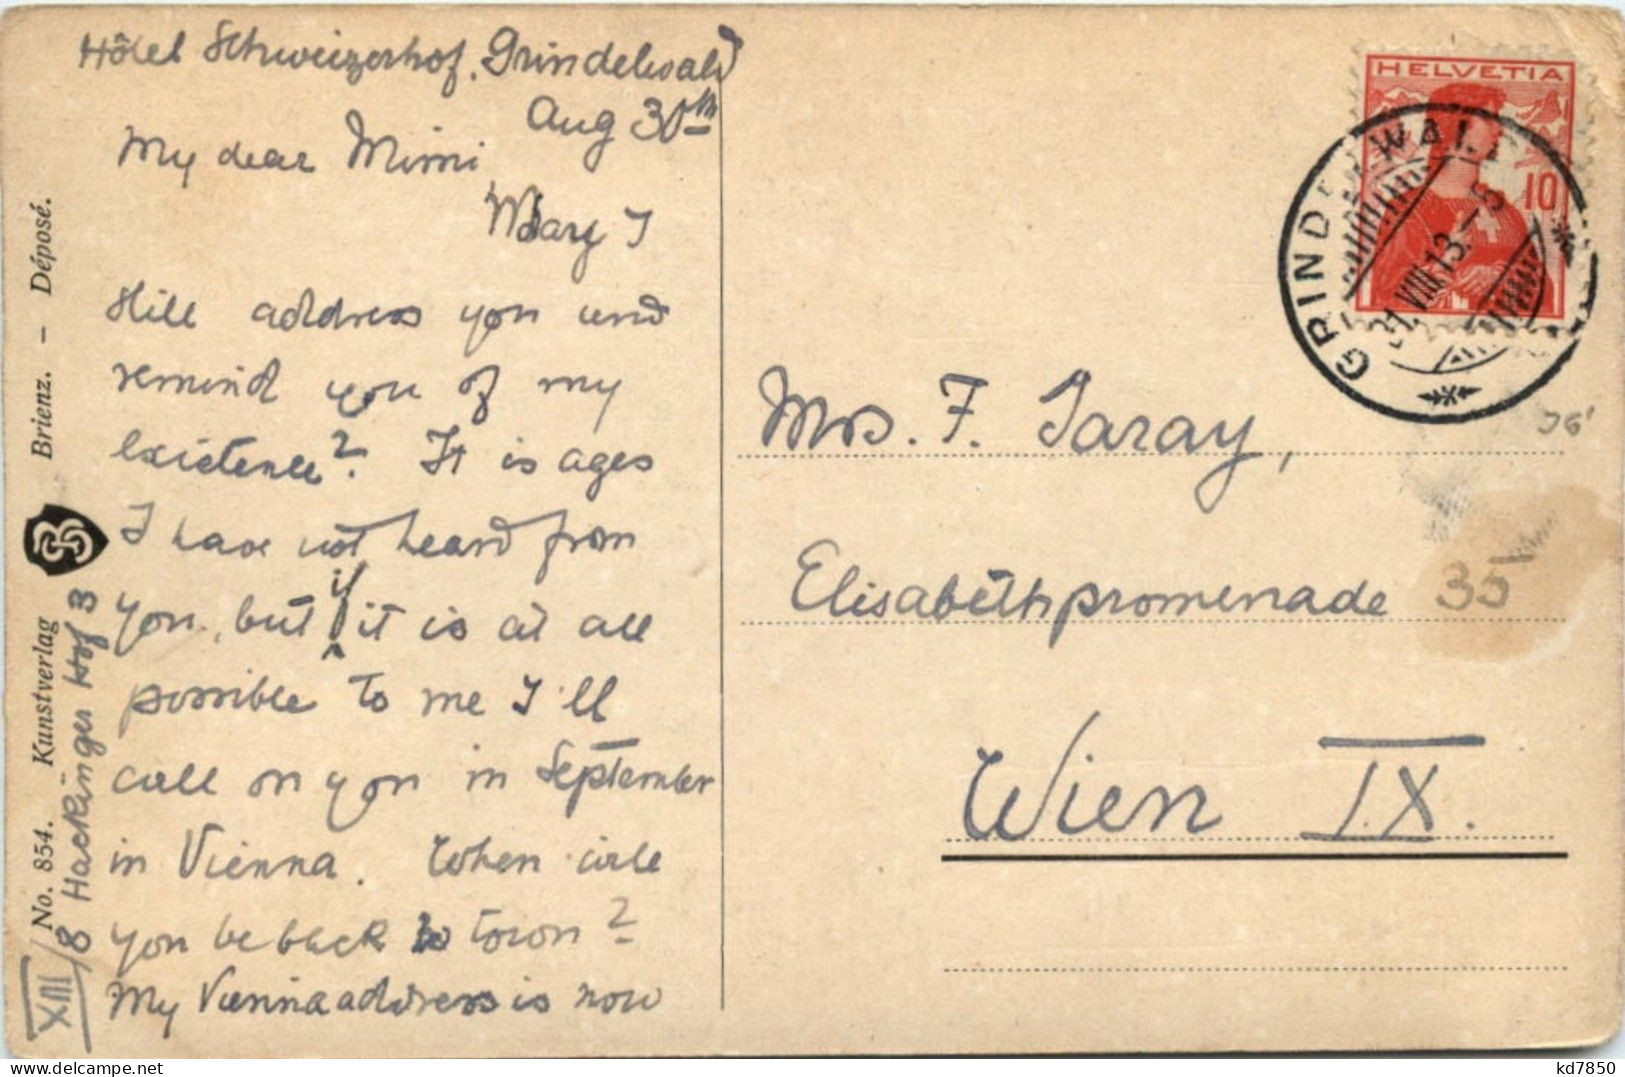 Hôtel Schweizerhof, Grindelwald
Aug 30th
My dear Mimi,
May I
still address you and
remind you of my
existence? It is ages
I have not heard from
you, but if it is at all
possible to me I'll
call on you in September
in Vienna. When will
you be back to town?
My Vienna address is now
XIII/8 Hackinger Hof 3
No. 854. Kunstverlag Brienz. – Déposé.
HELVETIA
10
GRINDELWALD
31.VIII.13.–5
Mrs. F. Taray,
Elisabethpromenade 35
Wien IX.
kd7850